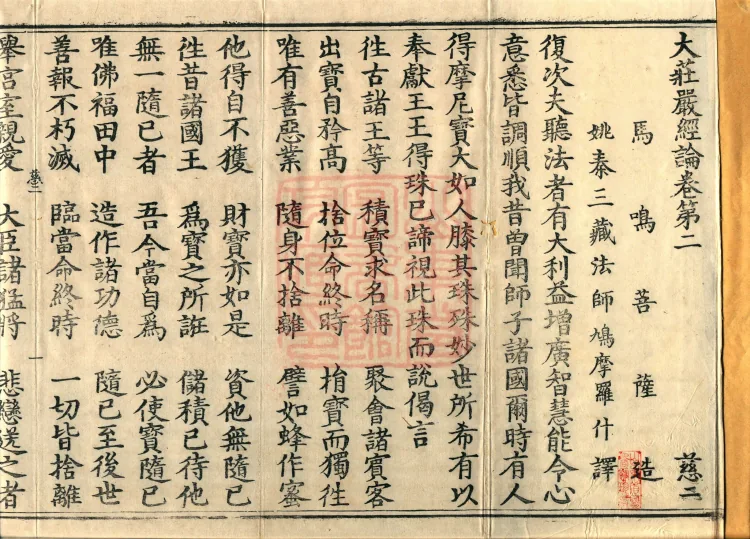 大莊嚴經論卷第二 慈二
馬鳴菩薩造
姚秦三藏法師鳩摩羅什譯
復次夫聽法者有大利益增廣智慧能令心
意悉皆調順我昔曾聞師子諸國爾時有人
得摩尼寶大如人膝其珠殊妙世所希有以
奉獻王王得珠已諦視此珠而說偈言
徃古諸王等 積寶求名稱 聚會諸賓客
出寶自矜高 捨位命終時 捐寶而獨徃
唯有善惡業 隨身不捨離 譬如蜂作蜜
他得自不獲 財寶亦如是 資他無隨已
徃昔諸國王 爲寶之所誑 儲積已待他
無一隨已者 吾今當自爲 必使寶隨已
唯佛福田中 造作諸功德 隨已至後世
善報不朽滅 臨當命終時 一切皆捨離
慈二 一
舉宮室親愛 大臣諸猛將 悲戀送之者